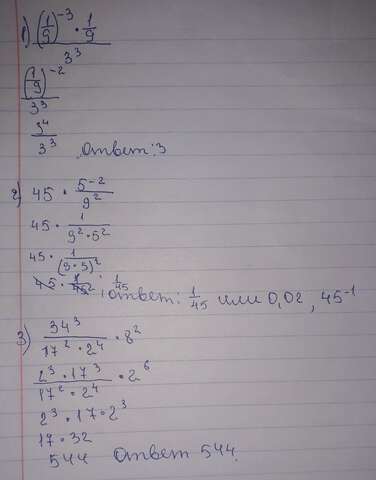 1) (1/9)^-3 · 1/9
3^3
(1/9)^-2
3^3
3^4
3^3
Ответ: 3
2) 45 · 5^-2/9^2
45 · 1/9^2·5^2
45 · 1/(9·5)^2
45 · 1/45^2 · 1/45, ответ: 1/45 или 0,02, 45^-1
3) 34^3/17^2·2^4 · 8^2
2^3·17^3/17^2·2^4 · 2^6
2^3·17·2^3
17·32
544 Ответ 544.